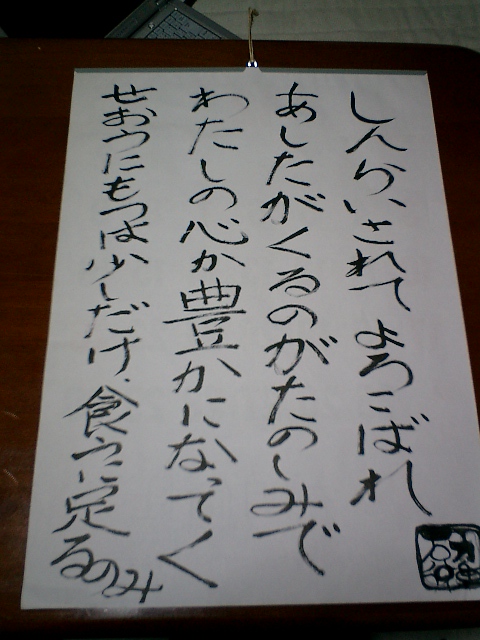 しんらいされてよろこばれ
あしたがくるのがたのしみで
わたしの心が豊かになってく
せおうにもつは少しだけ、食うに足るのみ